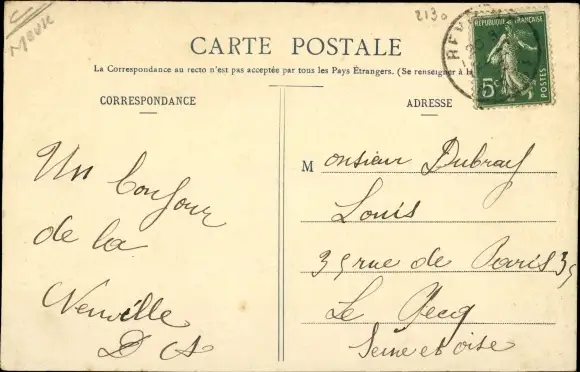 2130
MEUSE
CARTE POSTALE
La Correspondance au recto n'est pas acceptée par tous les Pays Étrangers. (Se renseigner à la
CORRESPONDANCE
Un bonjour
de la
Neuville
D A
ADRESSE
Monsieur Dubray
Louis
35 rue de Paris 35
Le Pecq
Seine et oise
RÉPUBLIQUE FRANÇAISE
5c
POSTES